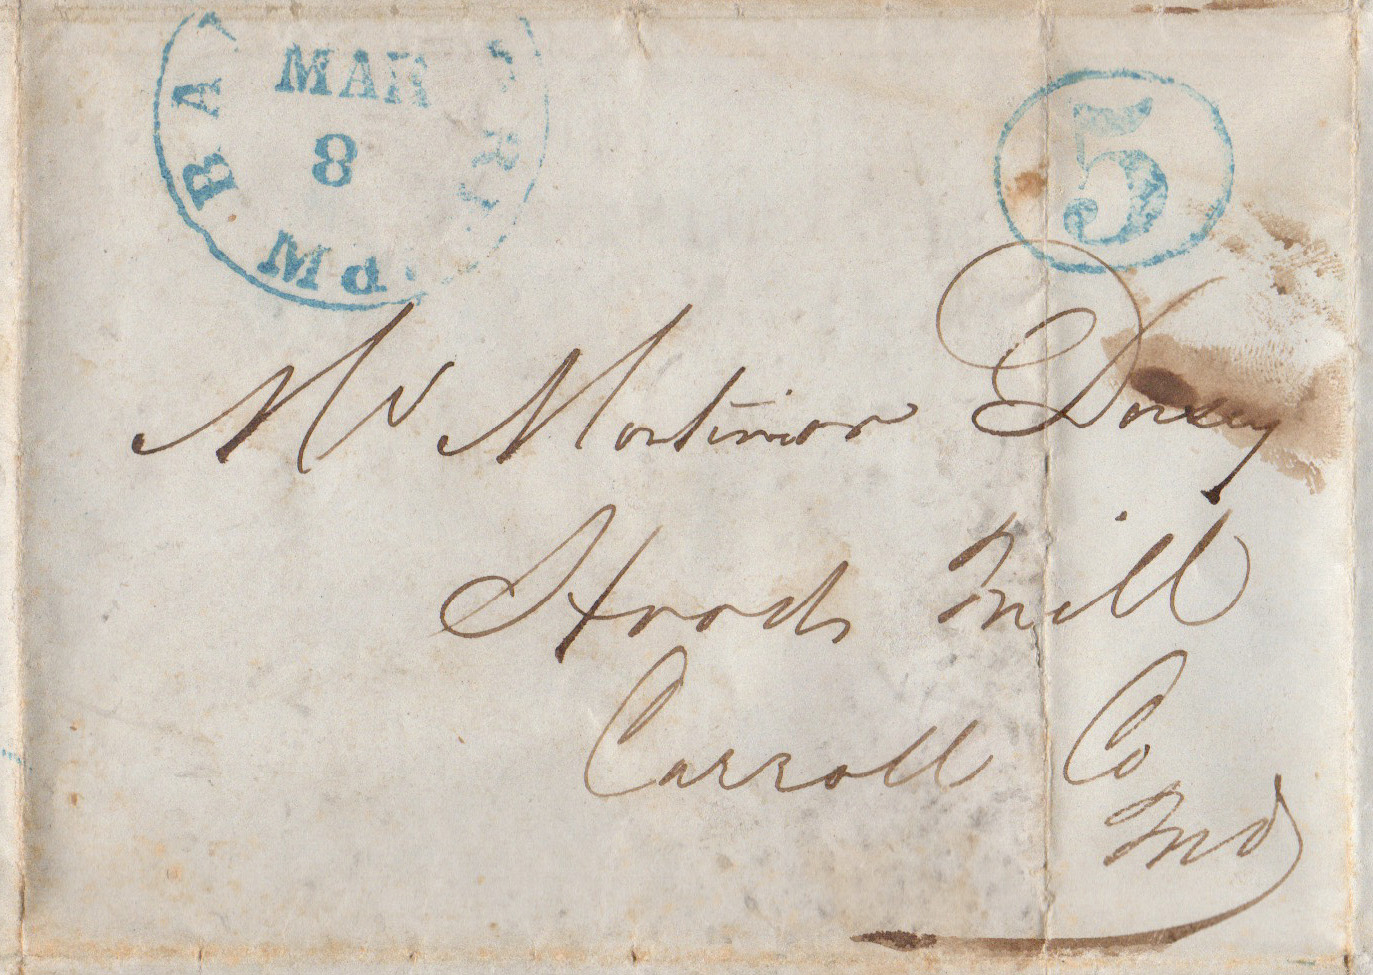 MAR
8
5
Mr Mortimor Dorsey
Hoods Mill
Carroll Co
Md